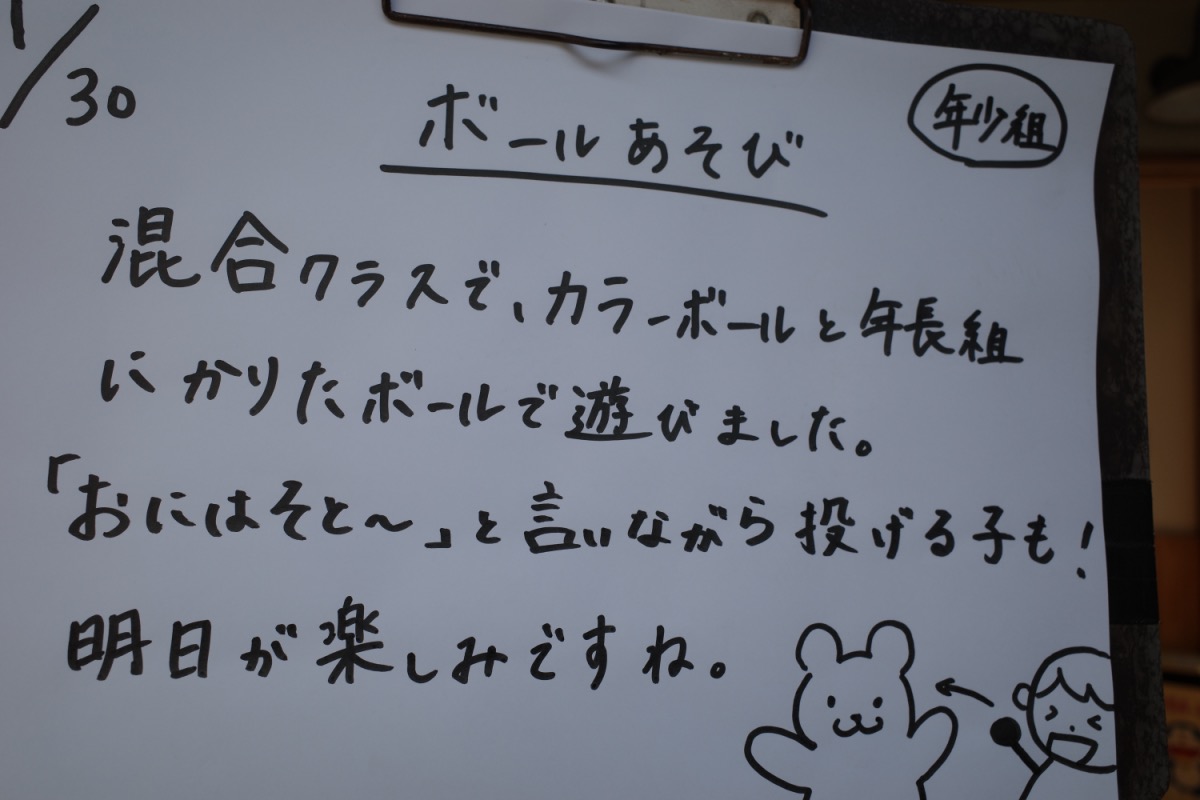 1/30
年少組
ボールあそび
混合クラスで、カラーボールと年長組
にかりたボールで遊びました。
「おにはそと〜」と言いながら投げる子も!
明日が楽しみですね。